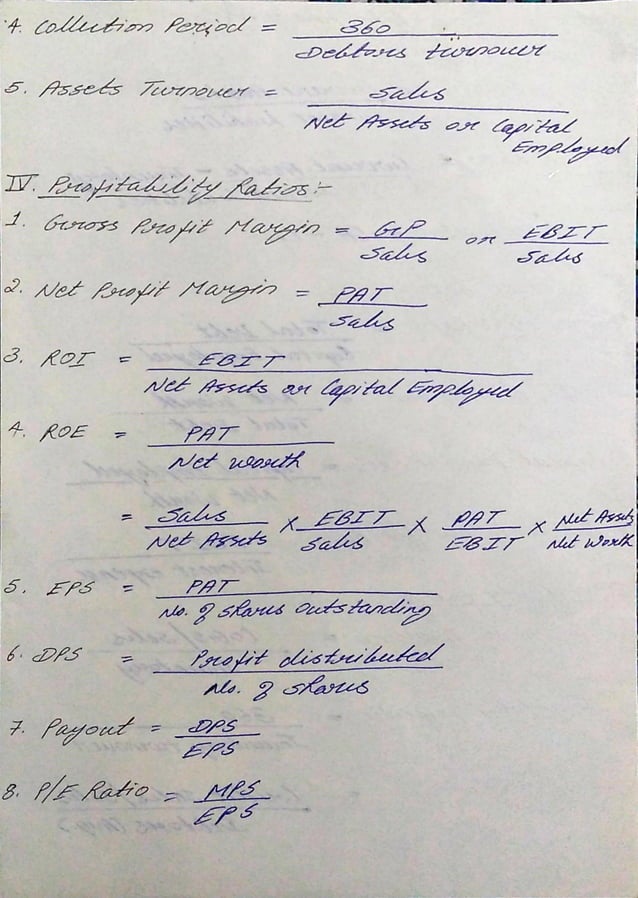 4. Collection Period = 360 / Debtors turnover
5. Assets Turnover = Sales / Net Assets or Capital Employed
IV. Profitability Ratios:-
1. Gross Profit Margin = GP / Sales or EBIT / Sales
2. Net Profit Margin = PAT / Sales
3. ROI = EBIT / Net Assets or Capital Employed
4. ROE = PAT / Net worth
= Sales / Net Assets × EBIT / Sales × PAT / EBIT × Net Assets / Net Worth
5. EPS = PAT / No. of shares outstanding
6. DPS = Profit distributed / No. of shares
7. Payout = DPS / EPS
8. P/E Ratio = MPS / EPS